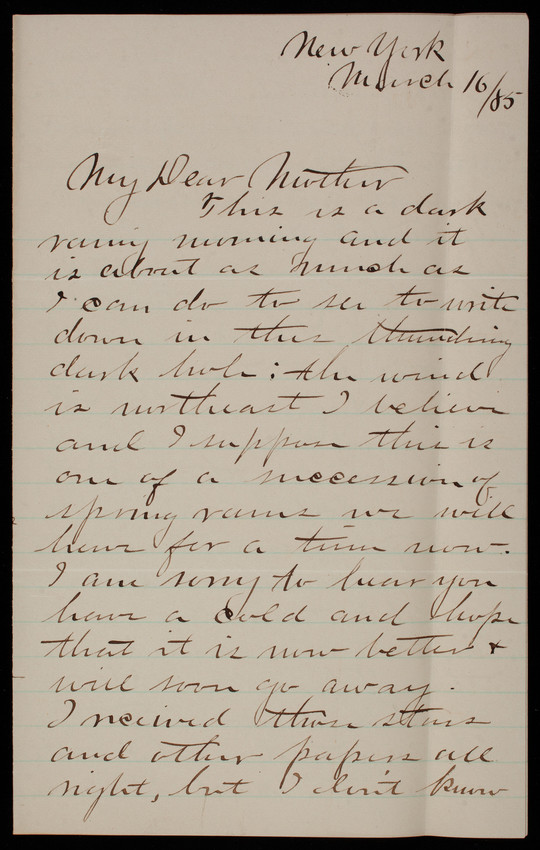 New York
March 16/85
My Dear Mother
This is a dark
rainy morning and it
is about as much as
I can do to see to write
down in this thundering
dark hole; the wind
is northeast I believe
and I suppose this is
one of a succession of
spring rains we will
have for a time now.
I am sorry to hear you
have a cold and hope
that it is now better +
will soon go away.
I received those
and other papers all
right, but I don't know